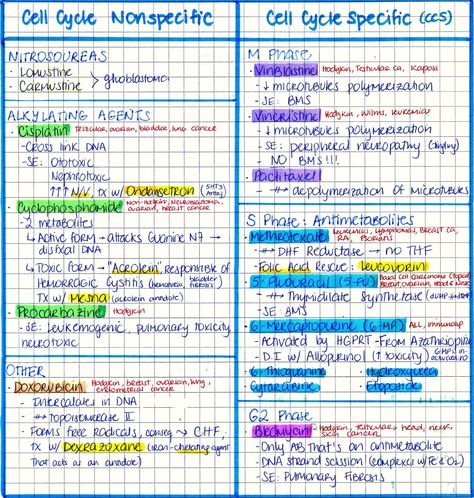 Cell Cycle Nonspecific
NITROSOUREAS
· Lomustine
· Carmustine > glioblastoma
ALKYLATING AGENTS
· Cisplatin Testicular, ovarian, bladder, lung cancer
- Cross link DNA
- SE: Ototoxic
Nephrotoxic
↑↑↑ N/V, TX w/ Ondansetron (5HT3
· Cyclophosphamide Non-Hodgkin, Neuroblastoma,
ovarian, breast cancer
- 2 metabolites
↳ Active form → attacks Guanine N7 →
disfxal DNA
↳ Toxic form → "Acrolein", responsible of
Hemorragic Cystitis (hematuria, bladder
fibrosis)
TX w/ Mesna (acrolein antidote)
· Procarbazine Hodgkin
- SE: Leukemogenic, pulmonary toxicity,
neurotoxic
OTHER
· Doxorubicin Hodgkins, breast, ovarian, lung,
endometrial cancer
- Intercalates in DNA
- Topoisomerase II
- Forms free radicals, causing → CHF
TX w/ Dexrazoxane (iron-chelating agent
That acts as an antidote)
Cell Cycle Specific (CCS)
M Phase
· Vinblastine Hodgkin, Testicular ca, Kaposi
- ↓ microtubules polymerization
- SE: BMS
· Vincristine Hodgkin, Wilms, leukemia
- ↓ microtubules polymerization
- SE: peripheral neuropathy
NO BMS!!!
· Paclitaxel
- depolymerization of microtubules
S Phase: Antimetabolites
· Methotrexate Leukemias, Lymphomas, Breast ca,
RA, Psoriasis
- DHF Reductase → no THF
- Folic Acid Rescue: Leucovorin
· 5-Fluouracil (5-FU) Basal cell carcinoma (topical)
Breast, ovarian, head & neck
- Thymidilate Synthetase
- SE BMS
· 6-Mercaptopurine (6-MP) ALL, immunosup
- Activated by HGPRT - From Azathioprine
- D.I w/ Allopurinol (↑ toxicity)
· 6-Thioguanine · Hydroxyurea
· Cytarabine · Etoposide
G2 Phase
· Bleomycin Hodgkin, testicular, head, neck,
skin cancer
- Only AB that's an antimetabolite
- DNA strand scission (complexes w/ Fe & O2)
- SE: Pulmonary Fibrosis